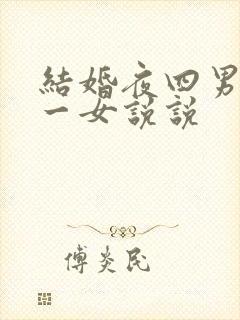 結婚夜四男
一女說說
傅炎民